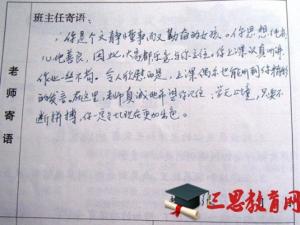 班主任寄语:
你是个文静、懂事而又勤奋的女孩。你思想纯
心地善良,因此,大家都乐意与你交往。你上课认真听讲,
作业一丝不苟。令人欣慰的是,上课偶尔也能听到你精彩
的发言。在这里,老师真诚地希望你记住:学无止境,只要不
断拼搏,你一定会比现在更加出色。
老师寄语
三思教育网